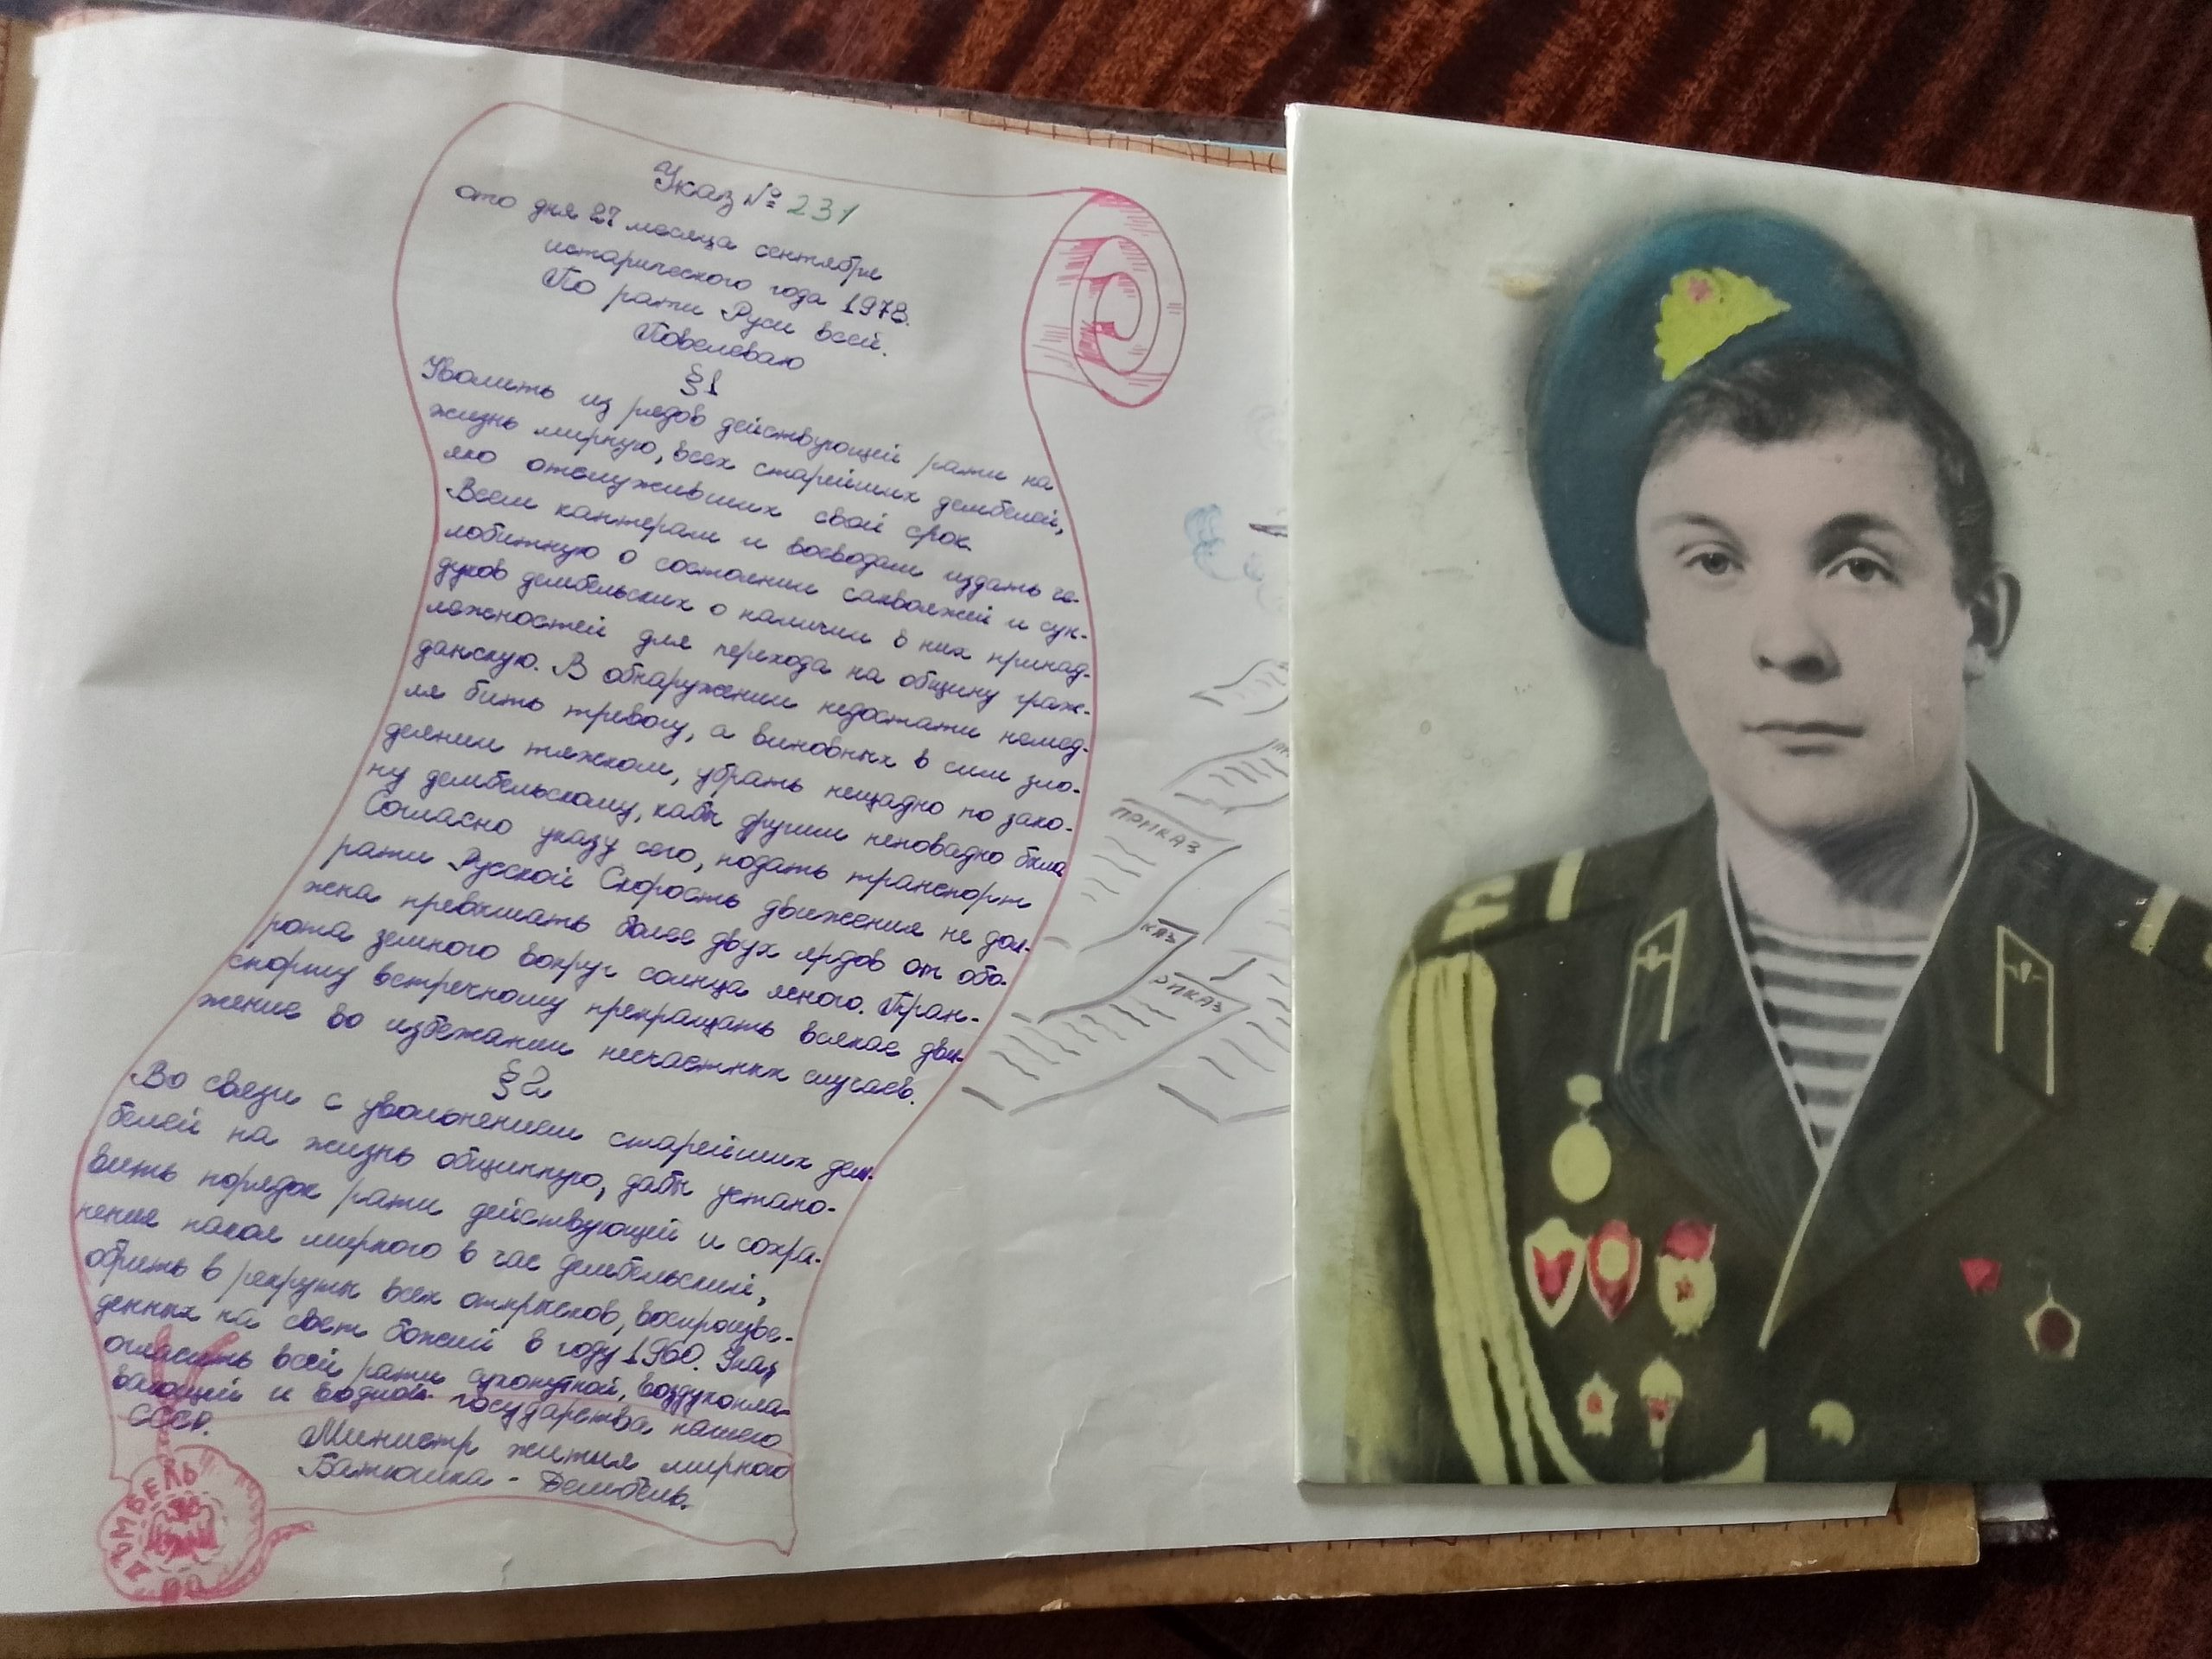 Указ № 231
ото дня 27 месяца сентября
истарического года 1978.
По рати Руси всей.
Повелеваю
§1
Уволить из рядов действующей рати на
жизнь мирную, всех старейших дембелей,
яко отслуживших свой срок.
Всем каптерам и воеводам издать че-
лобитную о состоянии саквояжей и сун-
дуков дембельских о наличии в них принад-
лежностей для перехода на общину граж-
данскую. В обнаружении недостати немед-
ля бить тревогу, а виновных в сим зло-
деянии тяжком, убрать нещадно по зако-
ну дембельскому, кабы другим неповадно было
Согласно указу сего, подать транспорт
рати Русской Скорость движения не дол-
жена превышать более двух ярдов от обо-
рота земного вокруг солнца ясного. Тран-
спорту встречному прекращать всякае дви-
жение во избежании несчастных случаев.
§2
Во связи с уволонением старейших дем-
белей на жизнь общинную, дабы устано-
вить порядок рати действующей и сохра-
нения покоя мирного в час дембельский,
обрить в рекруты всех отпрысков, воспроизве-
денных на свет божий в году 1960. Указ
огласить всей рати сухопутной, воздухопла-
вающей и водной государства нашего
СССР.
Министр жития мирного
Батюшка - Дембель.
ДЕМБЕЛЬ
ПРИКАЗ
КАЗ
РИКАЗ